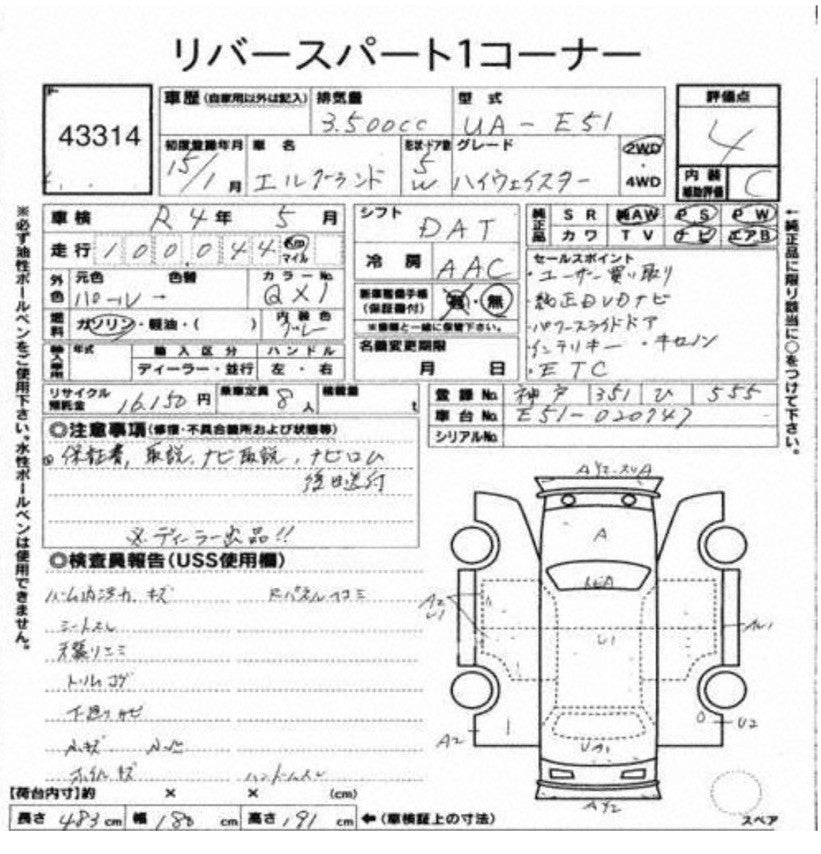 リバースパート1コーナー
43314
車歴(自家用以外は記入) 排気量 型式 評価点
3.500cc UA-E51 4
初度登録年月 車名 形状・ドア数 グレード 2WD・4WD
15/1月 エルグランド 5W ハイウェイスター
内装補助評価 C
※必ず油性ボールペンをご使用下さい。水性ボールペンは使用できません。
車検 R4年 5月
走行 100,044 km マイル
外色 元色 色替 カラーNo.
パール → QX1
燃料 ガソリン・軽油・( ) 内装色 グレー
輸入車用 年式 輸入区分 ハンドル
ディーラー・並行 左・右
シフト DAT
冷房 AAC
新車整備手帳(保証書付) 有・無
※書類と一緒に保管下さい。
名義変更期限
月 日
純正品 SR 純AW PS PW
カワ TV ナビ エアB
セールスポイント
・ユーザー買い取り
・純正DVDナビ
・パワースライドドア
・インテリキー ・キセノン
・ETC
←純正品に限り該当に○をつけて下さい。
リサイクル預託金 16,150円 乗車定員 8人 積載量 t
登録No. 神戸 351 ひ 555
車台No. E51-020747
シリアルNo.
◎注意事項(修復・不具合箇所および状態等)
◎保証書、取説、ナビ取説、ナビロム
後日送付
※ディーラー出品!!
◎検査員報告(USS使用欄)
シートスレ
下廻りサビ
ホイルキズ ハンドルスレ
A
U1
A2
U1
A2
U2
スペア
【荷台内寸】約 × × (cm)
長さ 483cm 幅 180cm 高さ 191cm ←(車検証上の寸法)